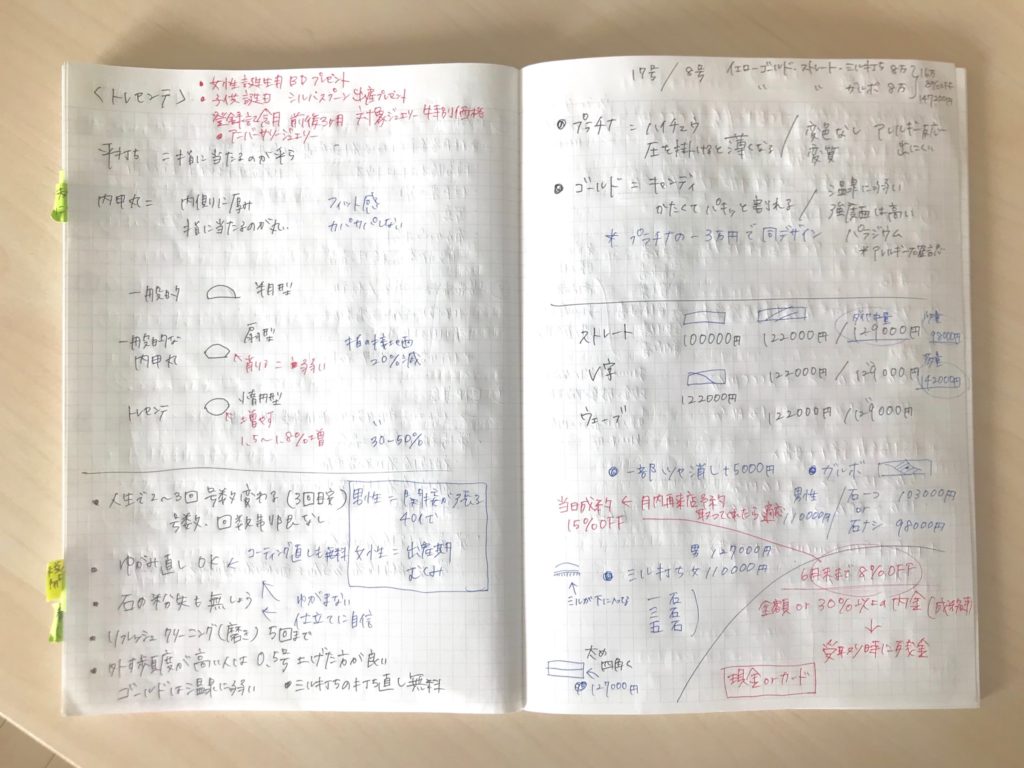 〈トレセンテ〉
• 女性誕生月 BDプレゼント
• 子供誕生日 シルバースプーン出産プレゼント
登録記念月 前後3ヶ月 対象ジュエリー 特別価格
• アニバーサリージュエリー
平打ち = 指に当たるのが平ら
内甲丸 = 内側に厚み フィット感
指に当たるのが丸い カパカパしない
一般的 半月型
一般的な 扇型 指の接地面
内甲丸 削り = 弱い 20%減
トレセンテ 楕円型 〃
増やす
1.5〜1.8%増 30-50%
• 人生で2〜3回 号数変わる (3回目安)
号数、回数制限なし
男性 = 40代で
女性 = 出産期
むくみ
• ゆがみ直し OK ← コーティング直しも無料
• 石の紛失も無しょう ← ゆがまない
仕立てに自信
• リフレッシュクリーニング(磨き) 5回まで
• 外す頻度が高い人は 0.5号上げた方が良い
ゴールドは温泉に弱い • ミル打ちの打ち直し無料
17号 / 8号 イエローゴールド・ストレート・ミル打ち 8万 16万
〃 〃 ガルボ 8万 8%OFF
147200円
• プラチナ = ハイチュウ / 変色なし アレルギー反応
圧を掛けると薄くなる / 変質 出にくい
• ゴールド = キャンディ / 温泉に弱い
かたくてパキッと割れる / 強度面は高い
* プラチナの-3万円で同デザイン パラジウム
ストレート 100000円 122000円 / 129000円 98000円
V字 122000円 122000円 / 129000円 142000円
ウェーブ 122000円 / 129000円
• 一部ツヤ消し +5000円 • ガルボ
当日成約 ← 月内再来店予約
15%OFF 取ってくれたら適応
男性 110000円 / 石一つ 103000円
or
石ナシ 98000円
男 127000円
• ミル打ち 女 110000円
ミルが下に入ってる
一石
三石
五石
太め
四角く
男 127000円
6月末まで 8%OFF
全額 or 30%以上の内金
↓
受取り時に残金
現金 or カード